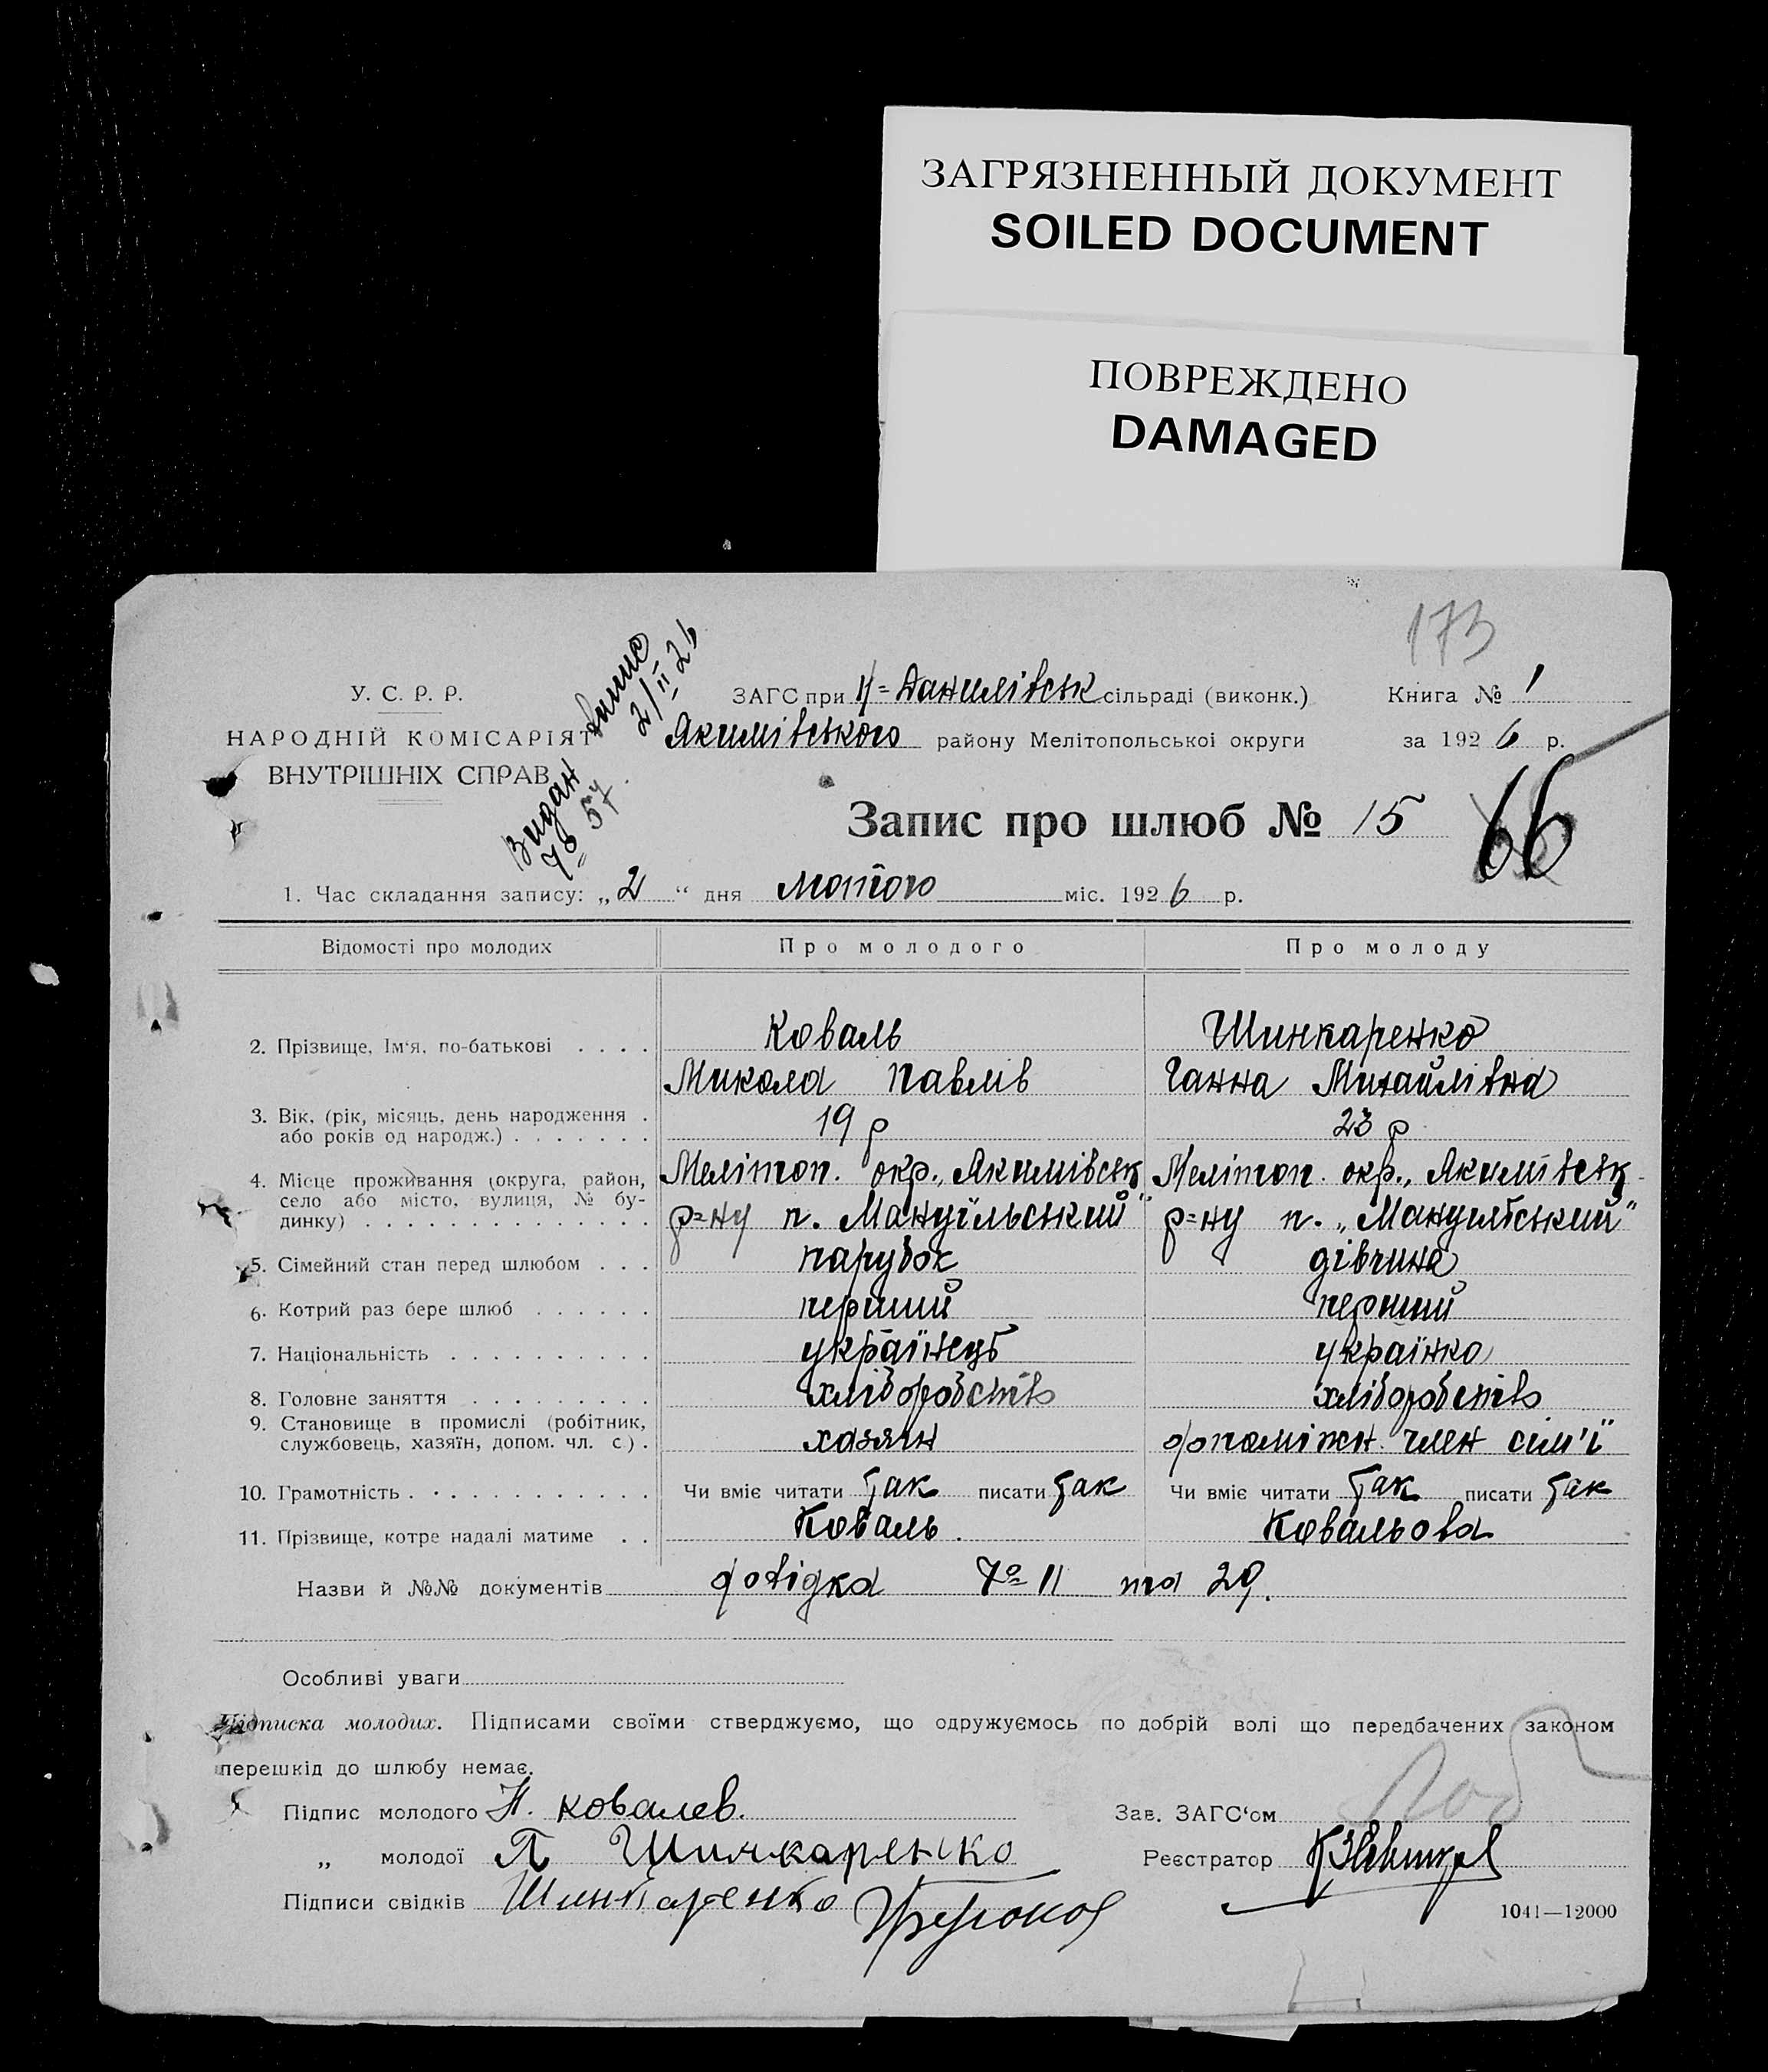 ЗАГРЯЗНЕННЫЙ ДОКУМЕНТ
SOILED DOCUMENT
ПОВРЕЖДЕНО
DAMAGED
173
У. С. Р. Р.
НАРОДНІЙ КОМІСАРІЯТ
ВНУТРІШНІХ СПРАВ
Видан
2/II 26
№ 57
ЗАГС при Н=Данилівськ сільраді (виконк.) Книга № 1
Якимівського району Мелітопольської округи за 1926 р.
Запис про шлюб № 15
66
1. Час складання запису: „2“ дня лютого міс. 1926 р.
Відомості про молодих Про молодого Про молоду
2. Прізвище, Ім'я, по-батькові . . . . Коваль Шинкаренко
Микола Павлів Ганна Михайлівна
3. Вік, (рік, місяць, день народження . або років од народж.) . . . . . . . 19 р 23 р
4. Місце проживання (округа, район, Меліноп. окр., Якимівськ Меліноп. окр., Якимівськ
село або місто, вулиця, № бу-
динку) . . . . . . . . . . . . . . р=ну п. Мануїльський" р=ну п. „Мануїльський"
5. Сімейний стан перед шлюбом . . . парубок дівчина
6. Котрий раз бере шлюб . . . . . . перший перший
7. Національність . . . . . . . . . . українець українка
8. Головне заняття . . . . . . . . . хліборобств хліборобств
9. Становище в промислі (робітник,
службовець, хазяїн, допом. чл. с.) . хазяїн допоміжн. член сім'ї
10. Грамотність . . . . . . . . . . . . Чи вміє читати так писати так Чи вміє читати так писати так
11. Прізвище, котре надалі матиме . . Коваль. Ковальова
Назви й №№ документів довідка № 11 та 29.
Особливі уваги
Підписка молодих. Підписами своїми стверджуємо, що одружуємось по добрій волі що передбачених законом
перешкід до шлюбу немає.
Підпис молодого Н. Ковалев. Зав. ЗАГС'ом
„ молодої Шинкаренко Реєстратор
Підписи свідків Шинкаренко
1041—12000